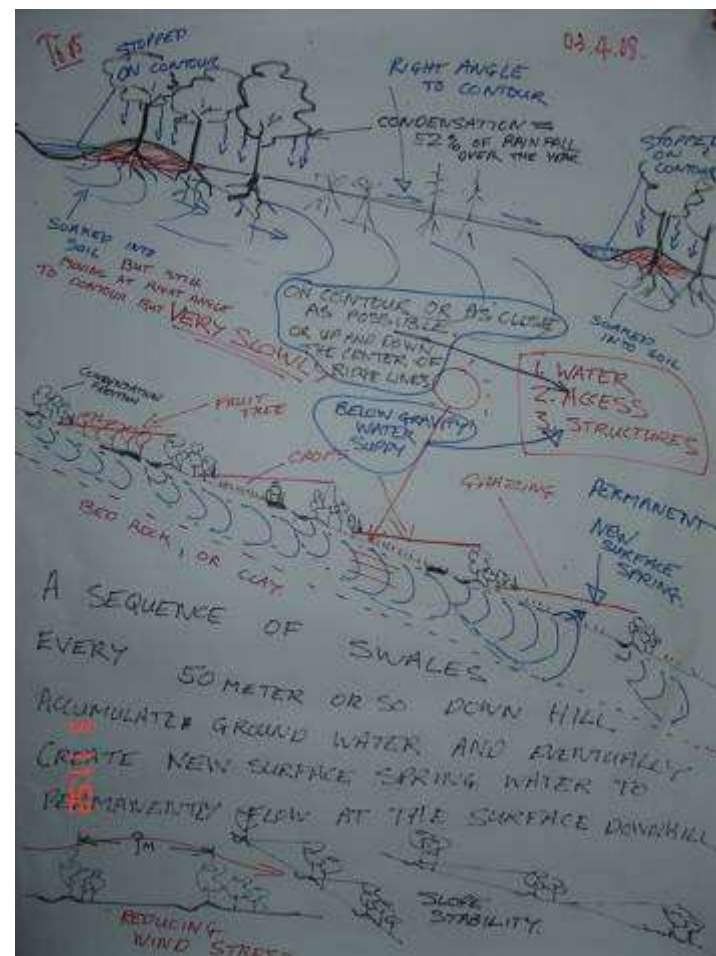 STOPPED
ON CONTOUR
03.4.08.
RIGHT ANGLE
TO CONTOUR
CONDENSATION =
52% OF RAINFALL
OVER THE YEAR
STOPPED
ON
CONTOUR
SOAKED INTO
SOIL BUT STILL
MOVING AT RIGHT ANGLE
TO CONTOUR BUT VERY SLOWLY
ON CONTOUR OR AS CLOSE
AS POSSIBLE
OR UP AND DOWN
THE CENTER OF
RIDGE LINES
SOAKED
INTO SOIL
1. WATER
2. ACCESS
3. STRUCTURES
BELOW GRAVITY
WATER
SUPPY
CONDENSATION
FRUIT
TREE
CROPS
GRAZING
PERMANENT
NEW
SURFACE
SPRING
BED ROCK, OR CLAY
A SEQUENCE OF SWALES
EVERY 50 METER OR SO DOWN HILL
ACCUMULATE GROUND WATER AND EVENTUALLY
CREATE NEW SURFACE SPRING WATER TO
PERMANENTLY FLOW AT THE SURFACE DOWNHILL
SLOPE
STABILITY.
REDUCING
WIND